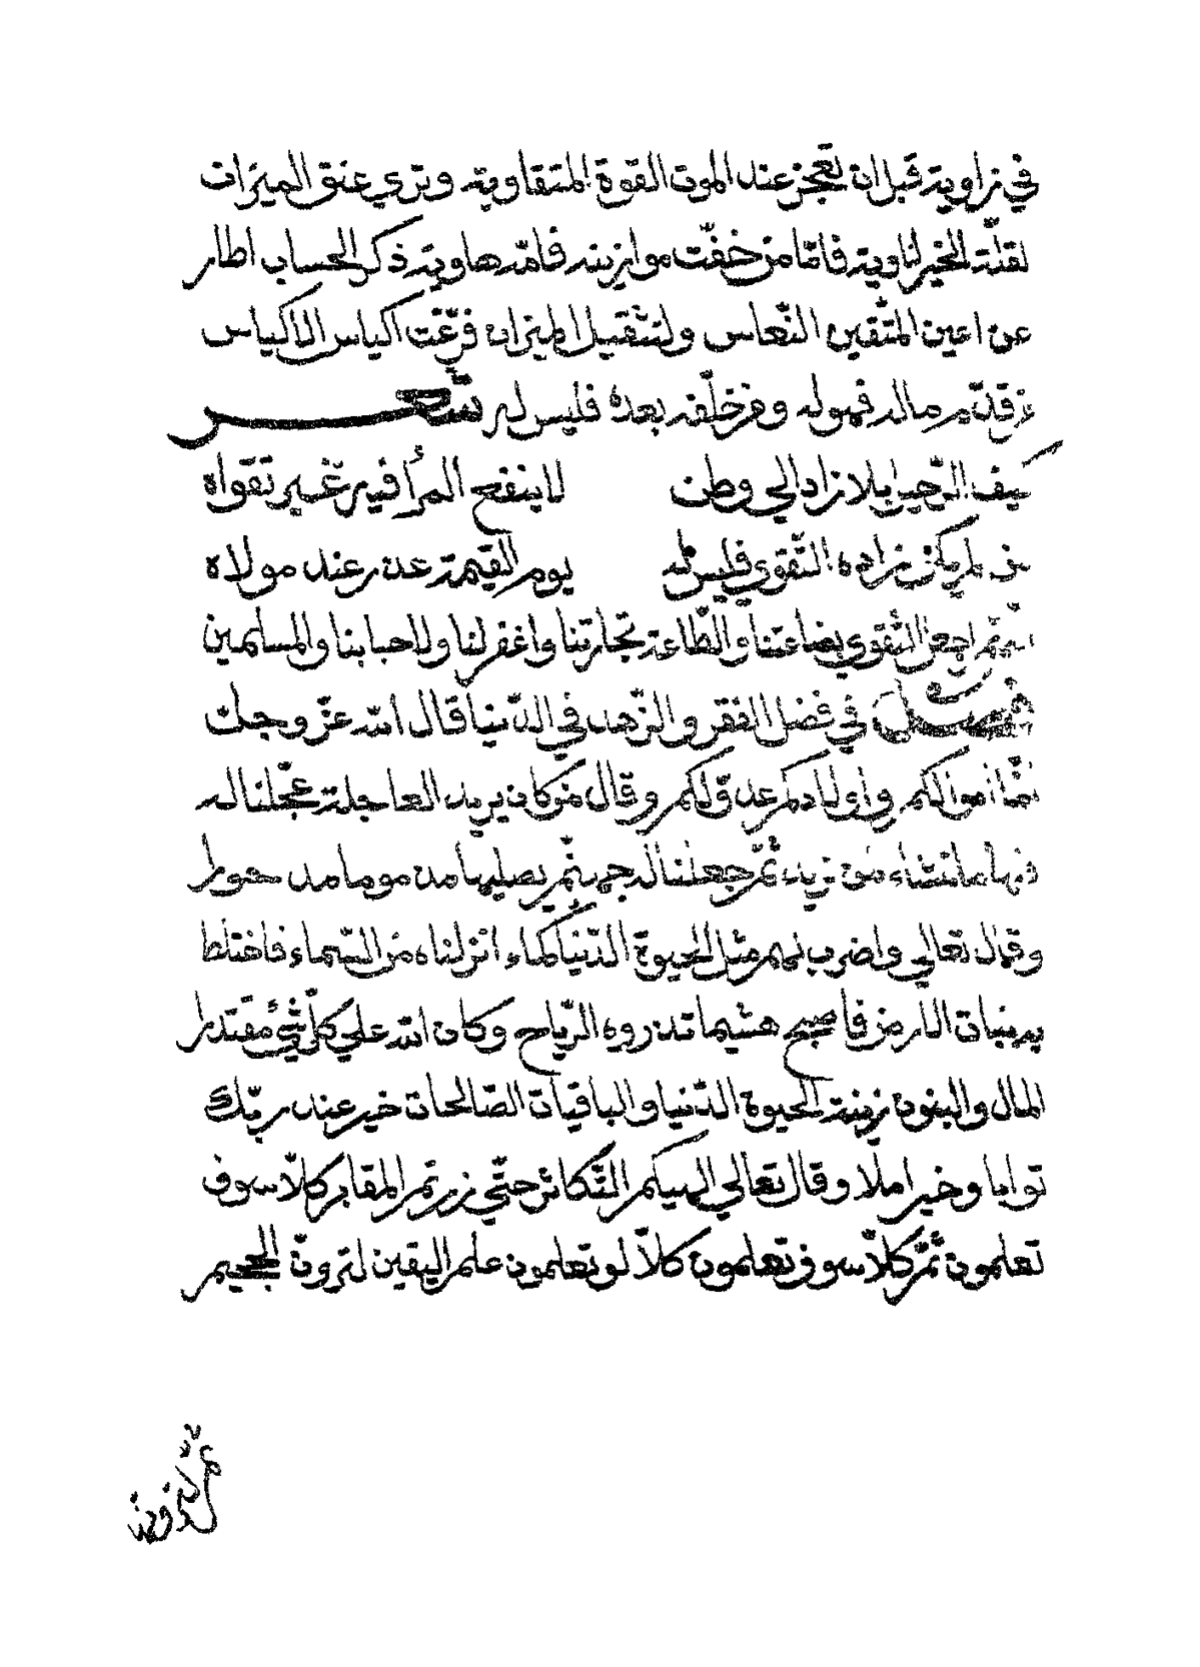 في زاوية قبل ان تعجز عند الموت القوة المتقاوية وتري عنق الميزان
لقلّة الخير لناوية فامّا من خفّت موازينه فامّه هاوية ذكر الحساب اطار
عن اعين المتّقين النّعاس ولتثقيل الميزان فرّغت اكياس الاكياس
من قدّم ماله فهوله ومن خلّفه بعده فليس له شعر
كيف الرّحيل بلا زاد الي وطن لا ينفع المرأ فيه غير تقواه
من لم يكن زاده التّقوي فليس له يوم القيمة عذر عند مولاه
اللّهم اجعل التّقوي بضاعتنا والطّاعة تجارتنا واغفر لنا ولاحبابنا والمسلمين
فصل في فضل الفقر والزّهد في الدّنيا قال الله عزّ وجل
انّما اموالكم واولادكم عدوّ لكم وقال من كان يريد العاجلة عجّلنا له
فيها ما نشاء لمن نريد ثمّ جعلنا له جهنّم يصليها مذموما مدحورا
وقال تعالي واضرب لهم مثل الحيوة الدّنيا كماء انزلناه من السّماء فاختلط
به نبات الارض فاصبح هشيما تذروه الرّياح وكان الله علي كلّ شئ مقتدرا
المال والبنون زينة الحيوة الدّنيا والباقيات الصّالحات خير عند ربّك
ثوابا وخير املا وقال تعالي الهيكم التّكاثر حتّي زرتم المقابر كلاّ سوف
تعلمون ثمّ كلاّ سوف تعلمون كلاّ لو تعلمون علم اليقين لترونّ الجحيم